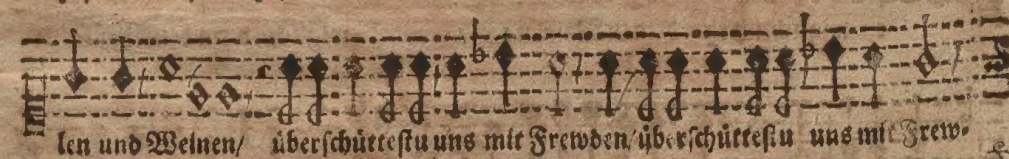 len und Weinen/ überschüttestu uns mit Frewden/ überschüttestu uns mit Frew-